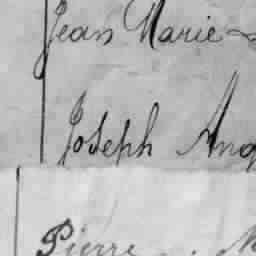 Jean Marie
Joseph Ang
Pierre . M